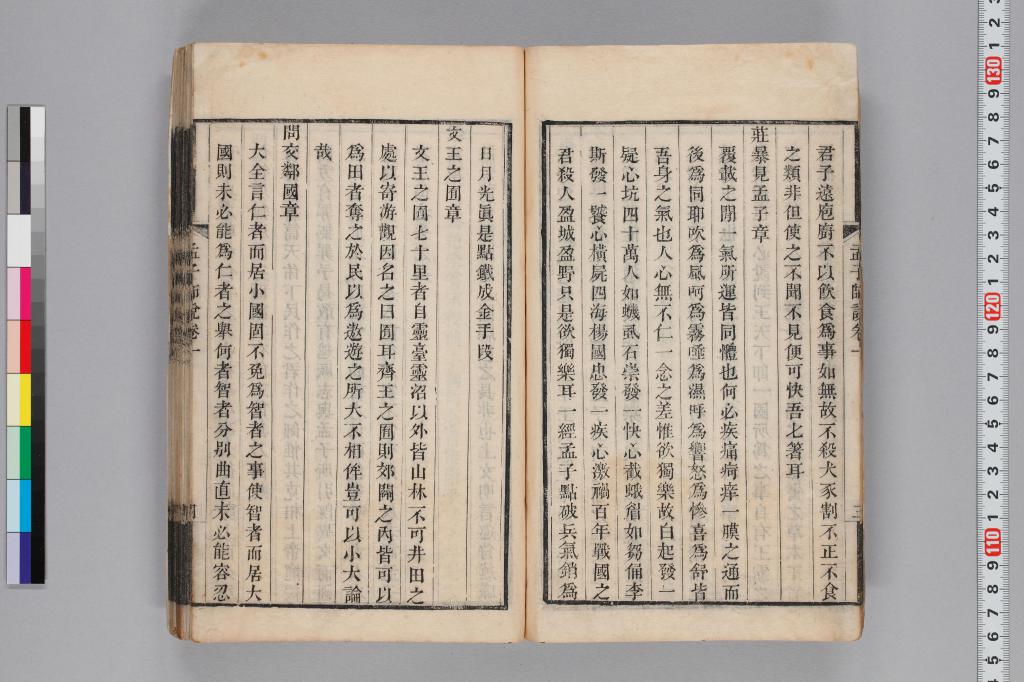 君子遠庖廚不以飲食爲事如無故不殺犬豕割不正不食
之類非但使之不聞不見便可快吾匕箸耳
莊暴見孟子章
覆載之間一氣所運皆同體也何必疾痛疴痒一膜之通而
後爲同耶吹爲風呵爲霧唾爲濕呼爲響怒爲慘喜爲舒皆
吾身之氣也人心無不仁一念之差惟欲獨樂故白起發一
疑心坑四十萬人如蟣虱石崇發一快心截蛾眉如芻俑李
斯發一饕心橫屍四海楊國忠發一疾心激禍百年戰國之
君殺人盈城盈野只是欲獨樂耳一經孟子點破兵氣銷爲
日月光眞是點鐵成金手段
文王之囿章
文王之囿七十里者自靈臺靈沼以外皆山林不可井田之
處以寄游觀因名之曰囿耳齊王之囿則郊關之內皆可以
爲田者奪之於民以爲遨遊之所大不相侔豈可以小大論
哉
問交鄰國章
大全言仁者而居小國固不免爲智者之事使智者而居大
國則未必能爲仁者之舉何者智者分別曲直未必能容忍
孟子師說卷一